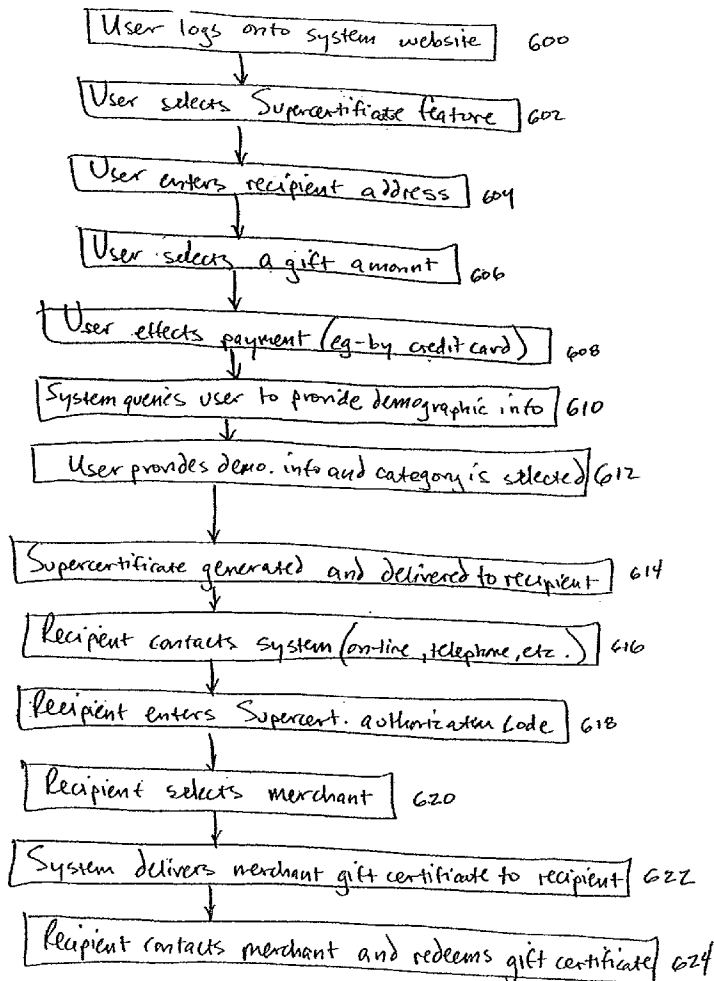 User logs onto system website 600
User selects Supercertificate feature 602
User enters recipient address 604
User selects a gift amount 606
User effects payment (eg-by credit card) 608
System queries user to provide demographic info 610
User provides demo. info and category is selected 612
Supercertificate generated and delivered to recipient 614
Recipient contacts system (on-line, telephone, etc.) 616
Recipient enters Supercert. authorization Code 618
Recipient selects merchant 620
System delivers merchant gift certificate to recipient 622
Recipient contacts merchant and redeems gift certificate 624